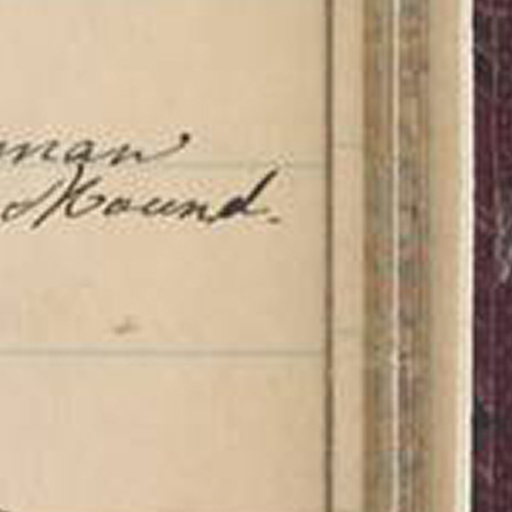 man
Mound.